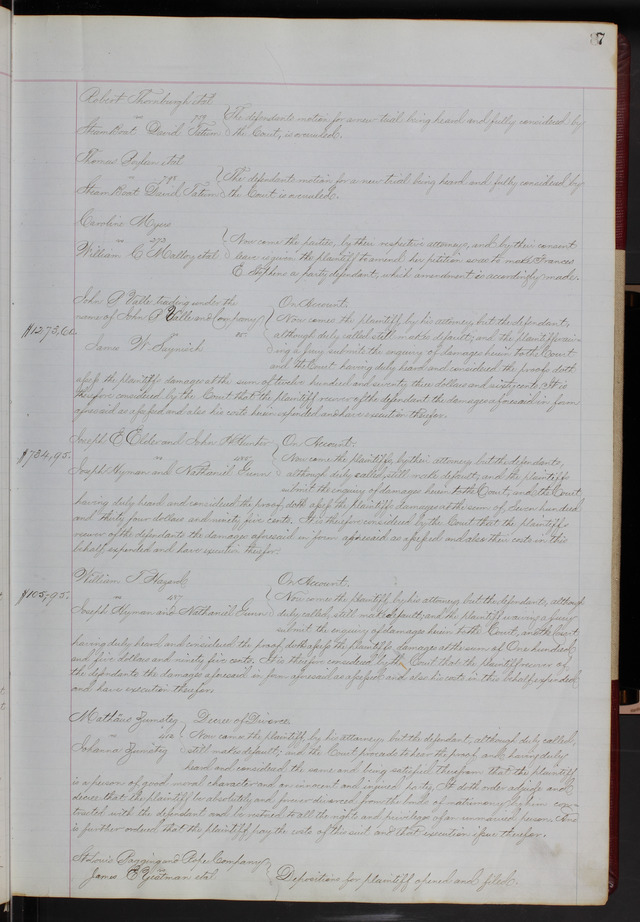 87
Robert Thornburgh et al
vs 779 } The defendants motion for a new trial being heard and fully considered by
Steam Boat David Tatum } the Court, is overruled.
Thomas et al
vs 798 } The defendants motion for a new trial being heard and fully considered by
Steam Boat David Tatum } the Court is overruled.
Caroline Myers
vs 373 } Now come the parties, by their respective attorneys, and by their consent
William C Malloy et al } leave is given the plaintiff to amend his petition so as to make Frances
E. Stephens a party defendant, which amendment is accordingly made.
John P Valle trading under the On Account.
name of John P Valle and Company } Now comes the plaintiff by his attorney but the defendant,
$1273,60. vs although duly called still makes default; and the plaintiff waiv-
James W. ing a jury submits the enquiry of damages herein to the Court
and the Court having duly heard and considered the proofs doth
assess the plaintiffs damages at the sum of twelve hundred and seventy three dollars and sixty cents. It is
therefore considered by the Court that the plaintiff recover of the defendant the damages aforesaid in form
aforesaid as assessed and also his costs herein expended and have execution therefor.
Joseph E Elder and John On Account.
vs 485 } Now come the plaintiffs, by their attorney but the defendants,
$734,95. Joseph Hyman and Nathaniel Gunn } although duly called, still make default; and the plaintiffs
submit the enquiry of damages herein to the Court; and the Court
having duly heard and considered the proof doth assess the plaintiffs damages at the sum of seven hundred
and thirty four dollars and ninety five cents. It is therefore considered by the Court that the plaintiffs
recover of the defendants the damages aforesaid in form aforesaid as assessed and also their costs in this
behalf expended and have execution therefor.
William T Hazard On Account.
$105,95. vs 487 } Now comes the plaintiff by his attorney but the defendants, although
Joseph Hyman and Nathaniel Gunn } duly called, still make default; and the plaintiff waiving a jury
submits the enquiry of damages herein to the Court, and the Court
having duly heard and considered the proof doth assess the plaintiffs damages at the sum of One hundred
and five dollars and ninety five cents. It is therefore considered by the Court that the plaintiff recover of
the defendants the damages aforesaid in form aforesaid as assessed and also his costs in this behalf expended
and have execution therefor.
Mathäus Zumsteg Decree of Divorce
vs } Now comes the plaintiff, by his attorney, but the defendant, although duly called,
Johanna Zumsteg } still makes default; and the Court proceeds to hear the proof, and having duly
heard and considered the same and being satisfied therefrom that the plaintiff
is a person of good moral character and an innocent and injured party, It doth order adjudge and
decree that the plaintiff be absolutely and forever divorced from the bonds of matrimony by him con-
tracted with the defendant and be restored to all the rights and privileges of an unmarried person. And
is further ordered that the plaintiff pay the costs of this suit and that execution issue therefor.
St Louis Bagging and Rope Company
vs
James E Yeatman et al } Depositions for plaintiff opened and filed.